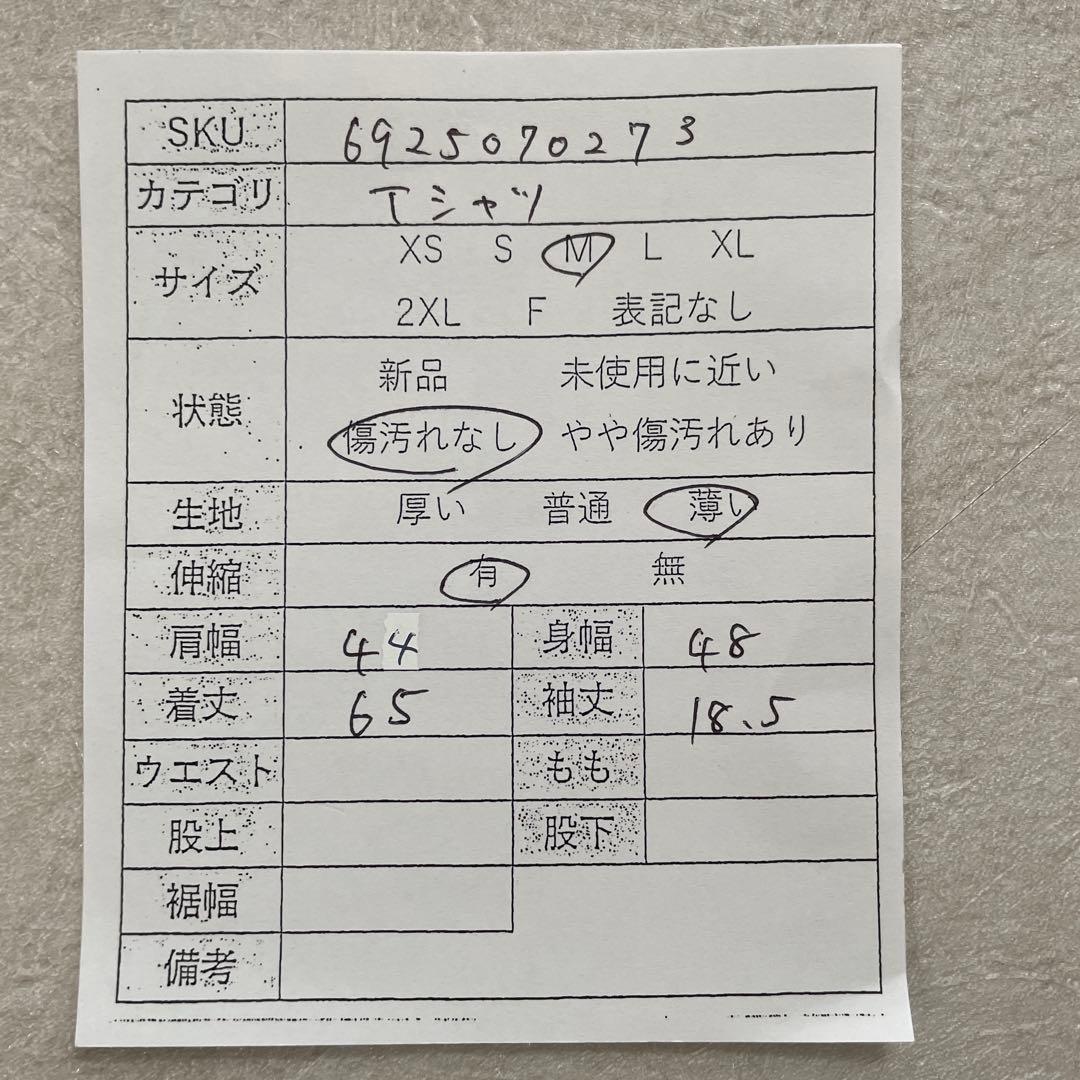 SKU 6925070273
カテゴリ Tシャツ
サイズ XS S M L XL
2XL F 表記なし
状態 新品 未使用に近い
傷汚れなし やや傷汚れあり
生地 厚い 普通 薄い
伸縮 有 無
肩幅 44 身幅 48
着丈 65 袖丈 18.5
ウエスト もも
股上 股下
裾幅
備考